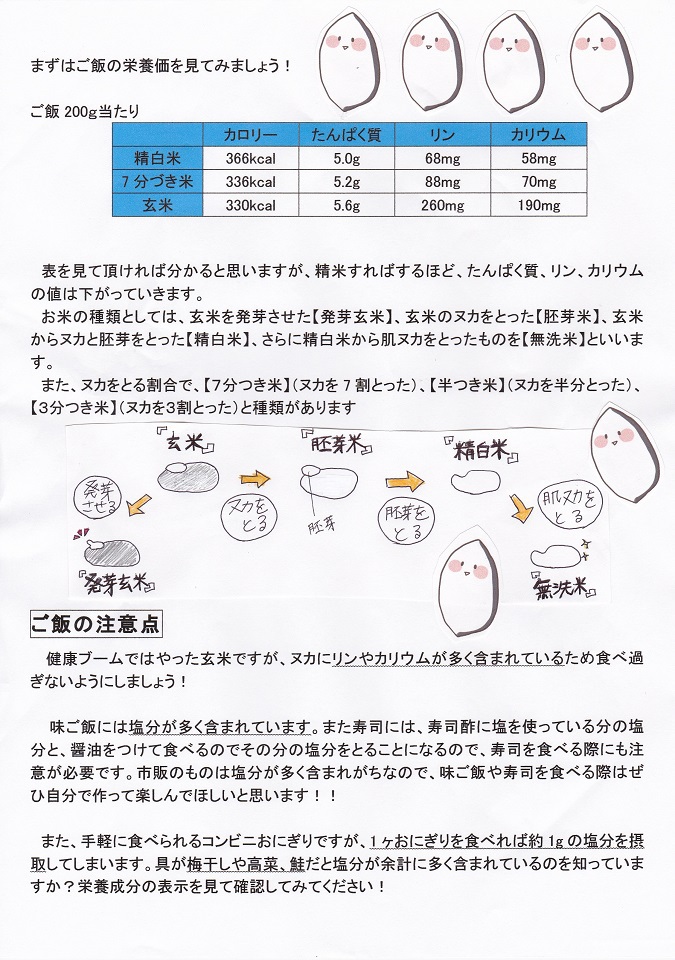 まずはご飯の栄養価を見てみましょう！
ご飯200g当たり
カロリー たんぱく質 リン カリウム
精白米 366kcal 5.0g 68mg 58mg
7分づき米 336kcal 5.2g 88mg 70mg
玄米 330kcal 5.6g 260mg 190mg
表を見て頂ければ分かると思いますが、精米すればするほど、たんぱく質、リン、カリウム
の値は下がっていきます。
お米の種類としては、玄米を発芽させた【発芽玄米】、玄米のヌカをとった【胚芽米】、玄米
からヌカと胚芽をとった【精白米】、さらに精白米から肌ヌカをとったものを【無洗米】といいま
す。
また、ヌカをとる割合で、【７分つき米】（ヌカを７割とった）、【半つき米】（ヌカを半分とった）、
【３分つき米】（ヌカを３割とった）と種類があります
『玄米』
『胚芽米』
『精白米』
発芽
させる
ヌカを
とる
胚芽
胚芽を
とる
肌ヌカを
とる
『発芽玄米』
『無洗米』
ご飯の注意点
健康ブームではやった玄米ですが、ヌカにリンやカリウムが多く含まれているため食べ過
ぎないようにしましょう！
味ご飯には塩分が多く含まれています。また寿司には、寿司酢に塩を使っている分の塩
分と、醤油をつけて食べるのでその分の塩分をとることになるので、寿司を食べる際にも注
意が必要です。市販のものは塩分が多く含まれがちなので、味ご飯や寿司を食べる際はぜ
ひ自分で作って楽しんでほしいと思います！！
また、手軽に食べられるコンビニおにぎりですが、１ヶおにぎりを食べれば約1gの塩分を摂
取してしまいます。具が梅干しや高菜、鮭だと塩分が余計に多く含まれているのを知っていま
すか？栄養成分の表示を見て確認してみてください！